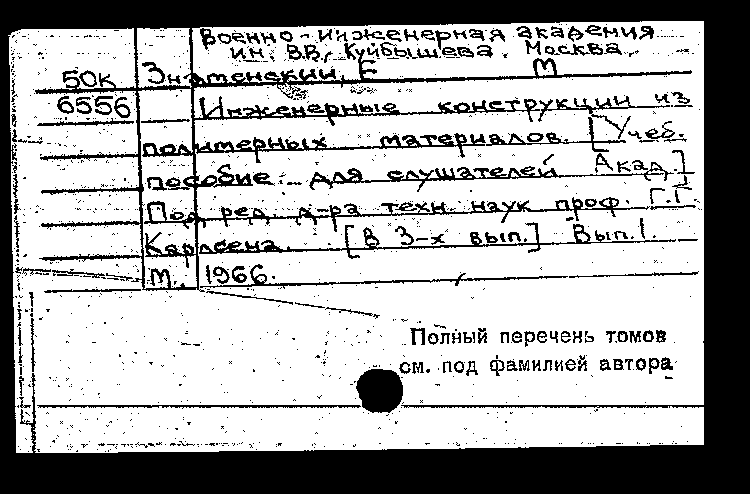 Военно-инженерная академия
им. В.В. Куйбышева. Москва.
50к Знаменский, Е М
6556 Инженерные конструкции из
полимерных материалов. [Учеб.
пособие для слушателей Акад.]
Под ред. д-ра техн. наук проф. Г.Г.
Карлсена. [В 3-х вып.] Вып. 1.
М., 1966.
Полный перечень томов
см. под фамилией автора